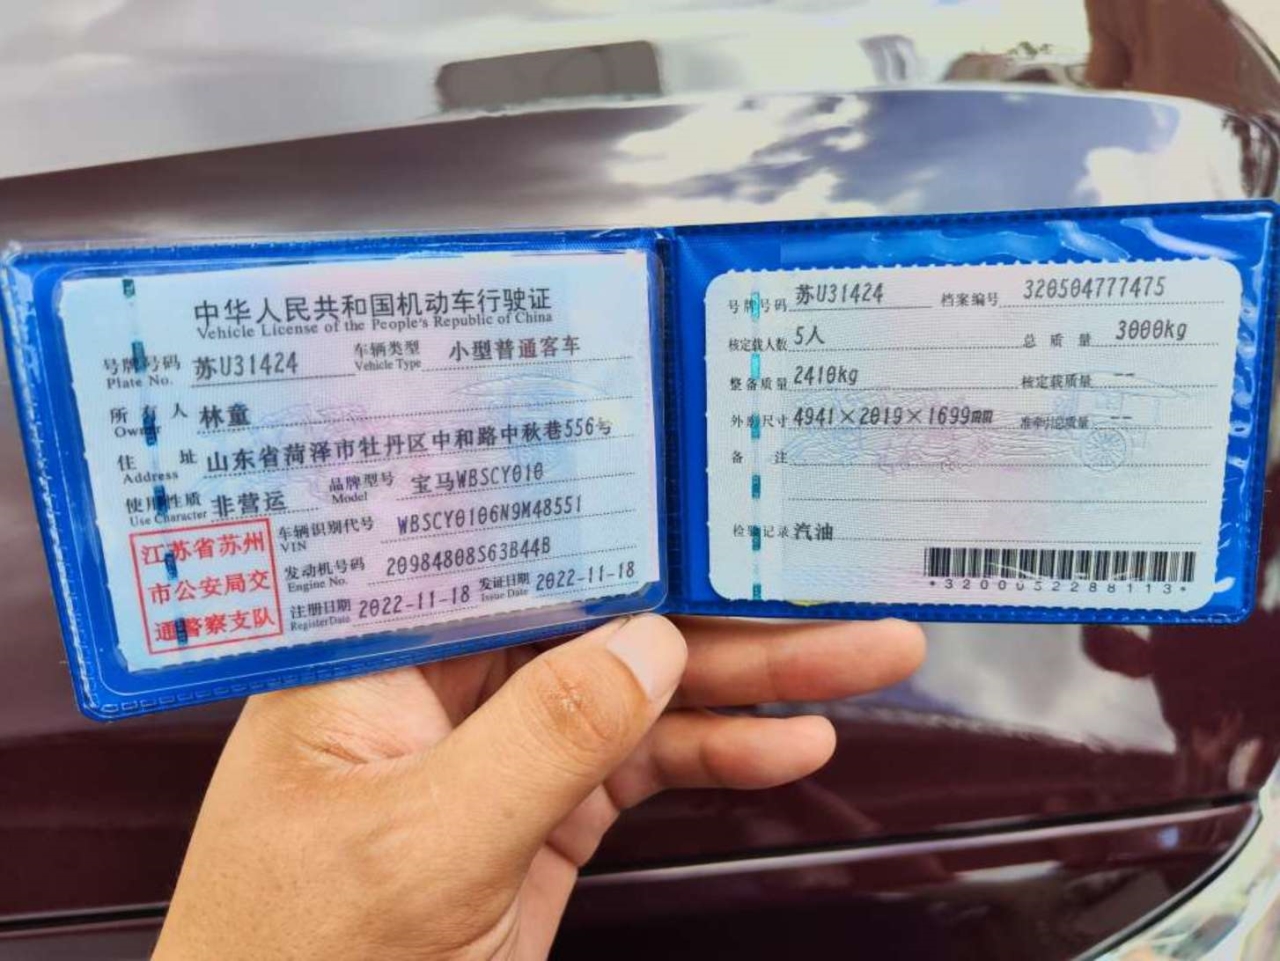 中华人民共和国机动车行驶证
Vehicle License of the People's Republic of China
号牌号码 苏U31424 车辆类型 小型普通客车
Plate No. Vehicle Type
所有人 林童
Owner
住址 山东省菏泽市牡丹区中和路中秋巷556号
Address
使用性质 非营运 品牌型号 宝马WBSCY010
Use Character Model
江苏省苏州
市公安局交
通警察支队
车辆识别代号 WBSCY0106N9M48551
VIN
发动机号码 20984808S63B44B
Engine No.
注册日期 2022-11-18 发证日期 2022-11-18
RegisterDate Issue Date
号牌号码 苏U31424 档案编号 320504777475
核定载人数 5人 总质量 3000kg
整备质量 2410kg 核定载质量 --
外廓尺寸 4941×2019×1699mm 准牵引总质量 --
备注
检验记录 汽油
*3200052288113*